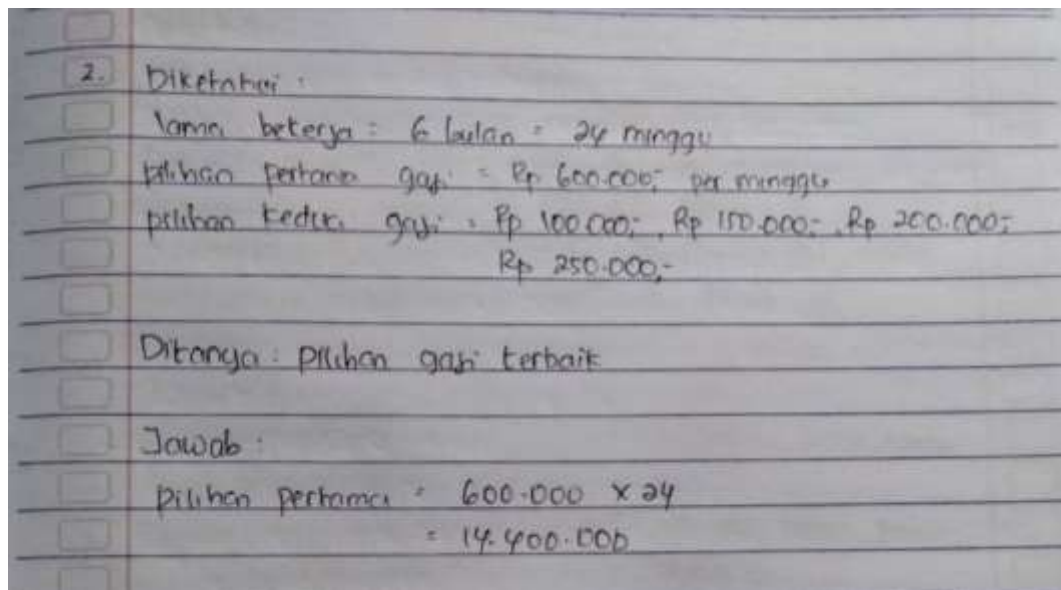 2. Diketahui :
lama bekerja : 6 bulan = 24 minggu
pilihan pertama gaji = Rp 600.000,- per minggu
pilihan kedua gaji = Rp 100.000,-, Rp 150.000,-, Rp 200.000,-
Rp 250.000,-
Ditanya : pilihan gaji terbaik
Jawab :
pilihan pertama = 600.000 x 24
= 14.400.000